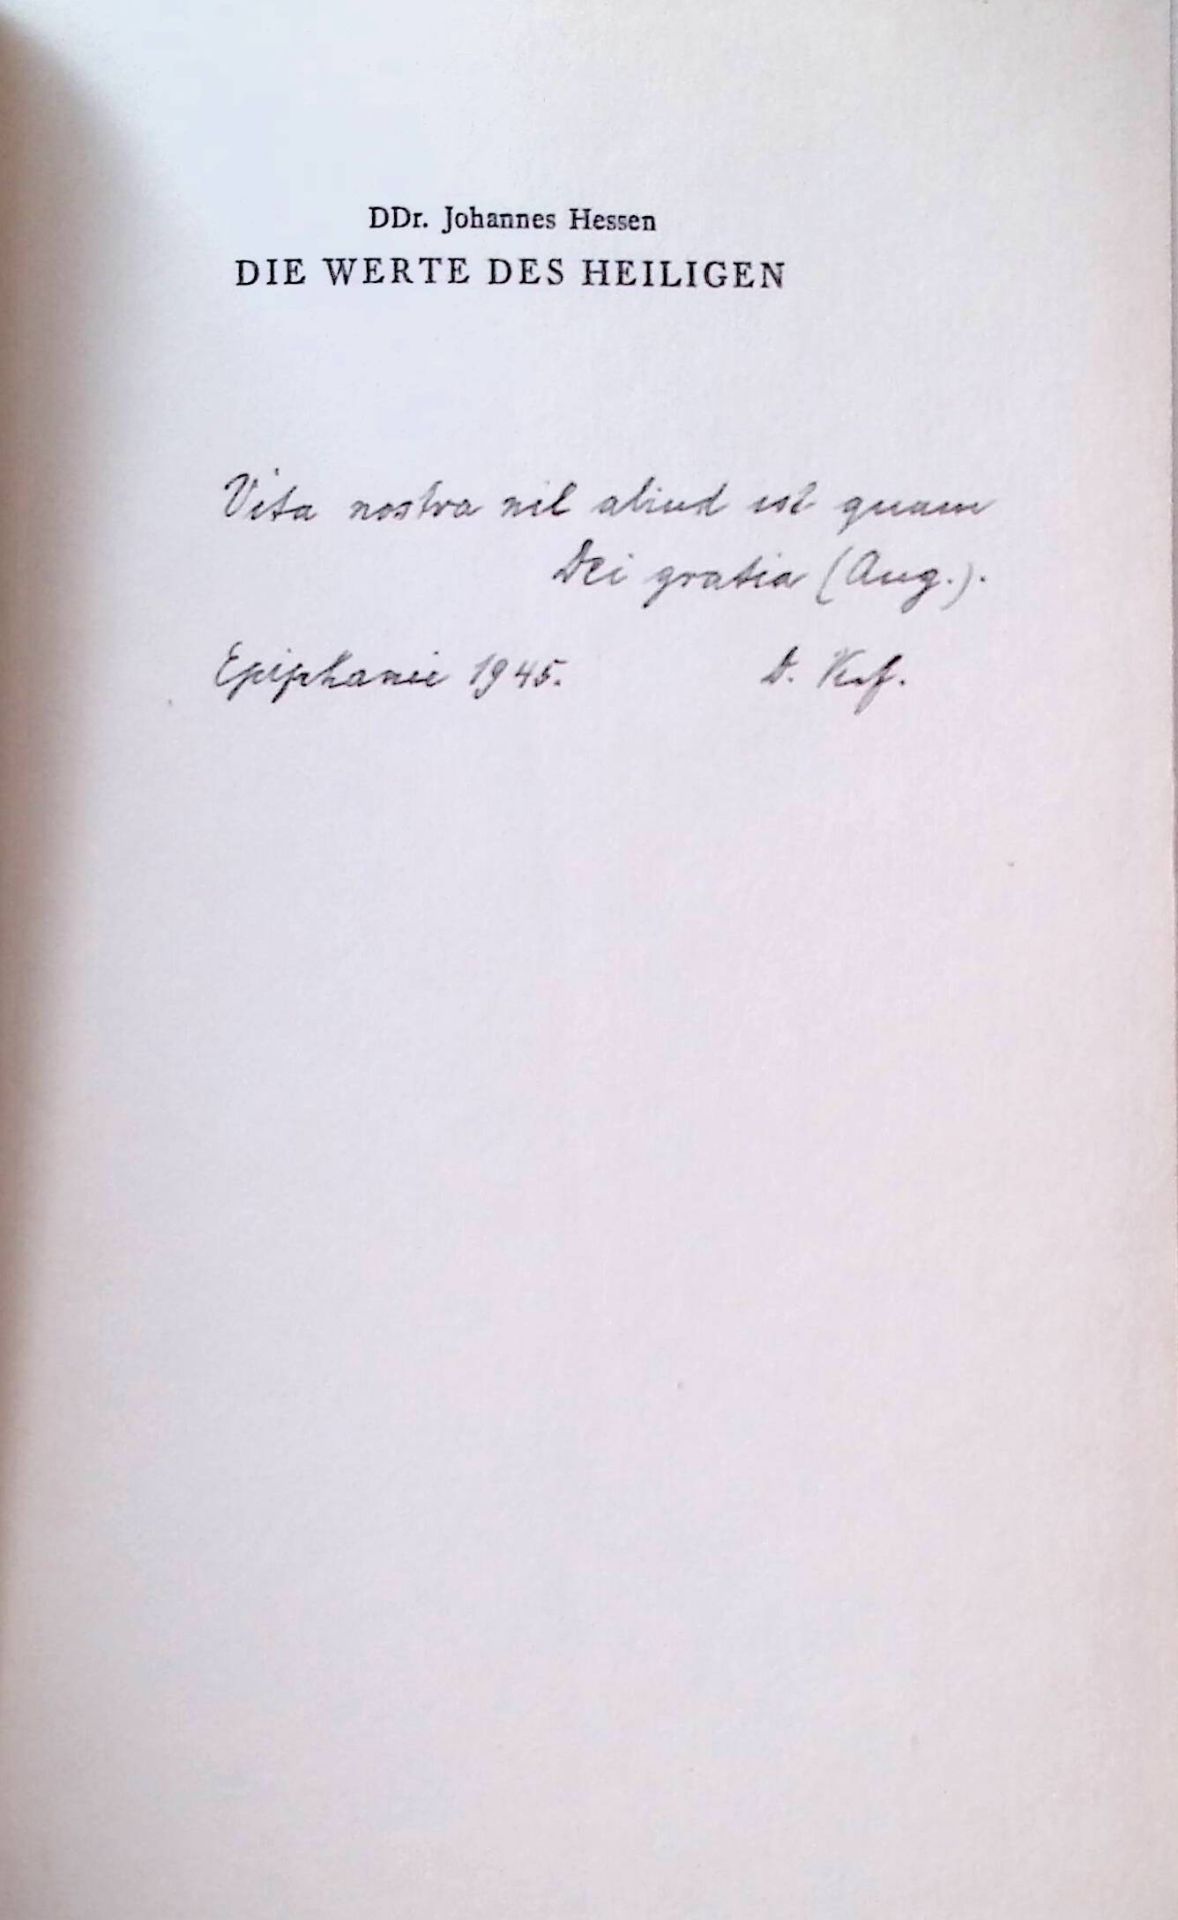 DDr. Johannes Hessen
DIE WERTE DES HEILIGEN
Vita nostra nil aliud est quam
Dei gratia (Aug.).
Epiphanie 1945. D. Verf.